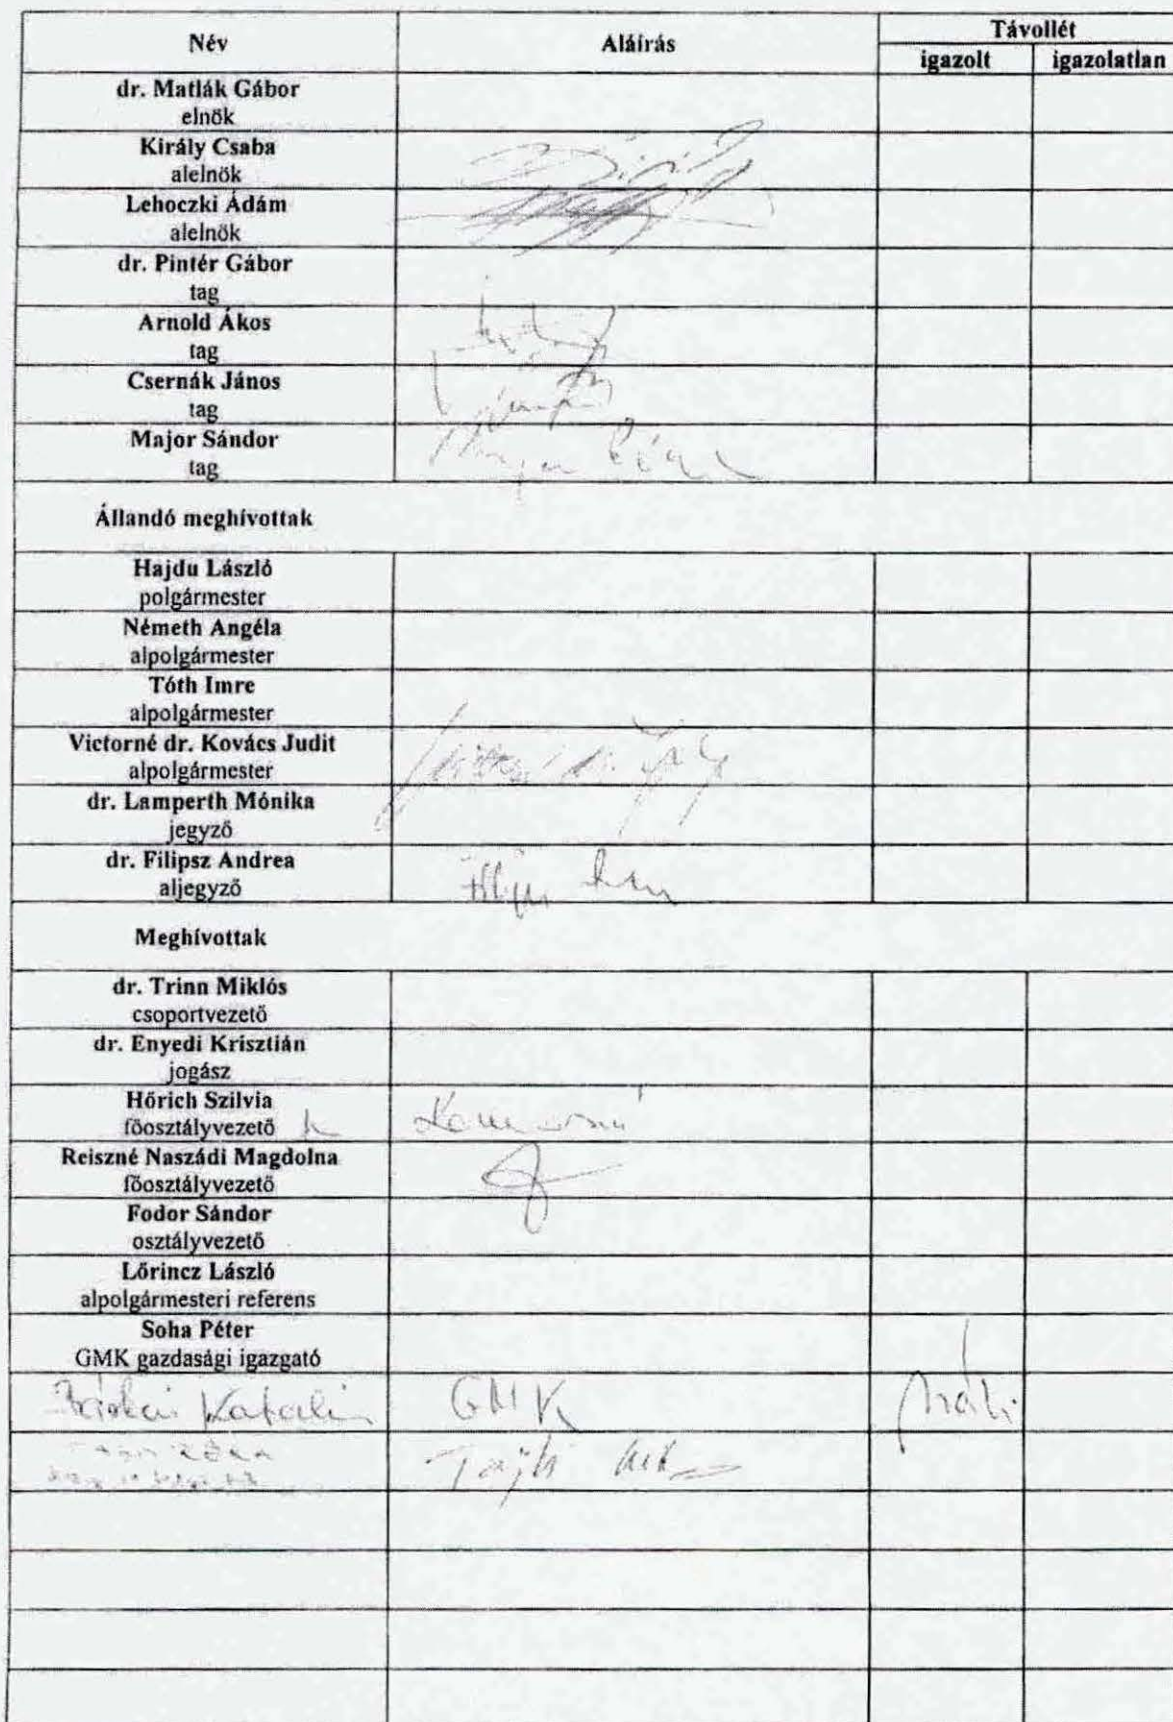 Név Aláírás Távollét
igazolt igazolatlan
dr. Matlák Gábor
elnök
Király Csaba
alelnök
Lehoczki Ádám
alelnök
dr. Pintér Gábor
tag
Arnold Ákos
tag
Csernák János
tag
Major Sándor
tag
Állandó meghívottak
Hajdu László
polgármester
Németh Angéla
alpolgármester
Tóth Imre
alpolgármester
Victorné dr. Kovács Judit
alpolgármester
dr. Lamperth Mónika
jegyző
dr. Filipsz Andrea
aljegyző
Meghívottak
dr. Trinn Miklós
csoportvezető
dr. Enyedi Krisztián
jogász
Hőrich Szilvia
főosztályvezető
Reiszné Naszádi Magdolna
főosztályvezető
Fodor Sándor
osztályvezető
Lőrincz László
alpolgármesteri referens
Soha Péter
GMK gazdasági igazgató
Katalin GMK